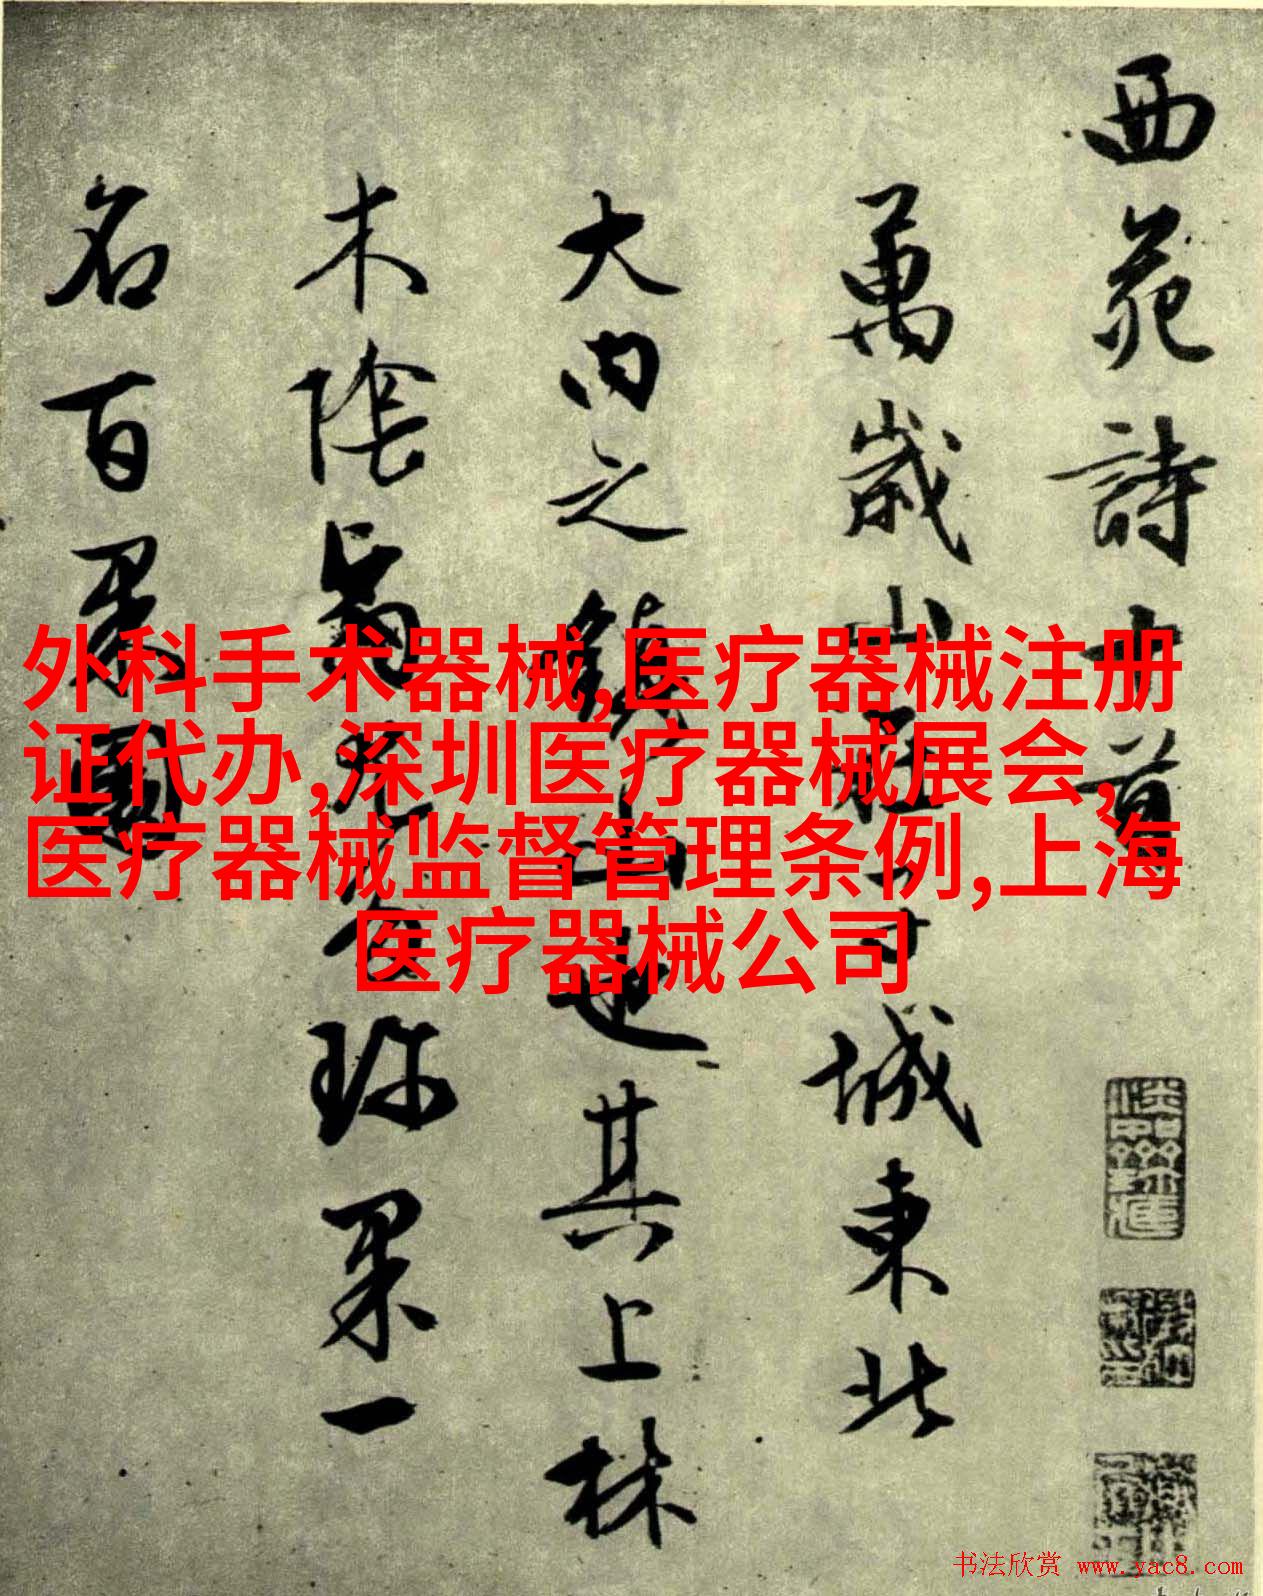 西苑詩十首
萬歲山在子城東北
大内之鎮山也其上林
木陰翳尤多珍果一
名百果園
外科手术器械,医疗器械注册
证代办,深圳医疗器械展会,
医疗器械监督管理条例,上海
医疗器械公司
书法欣赏 www.yac8.com